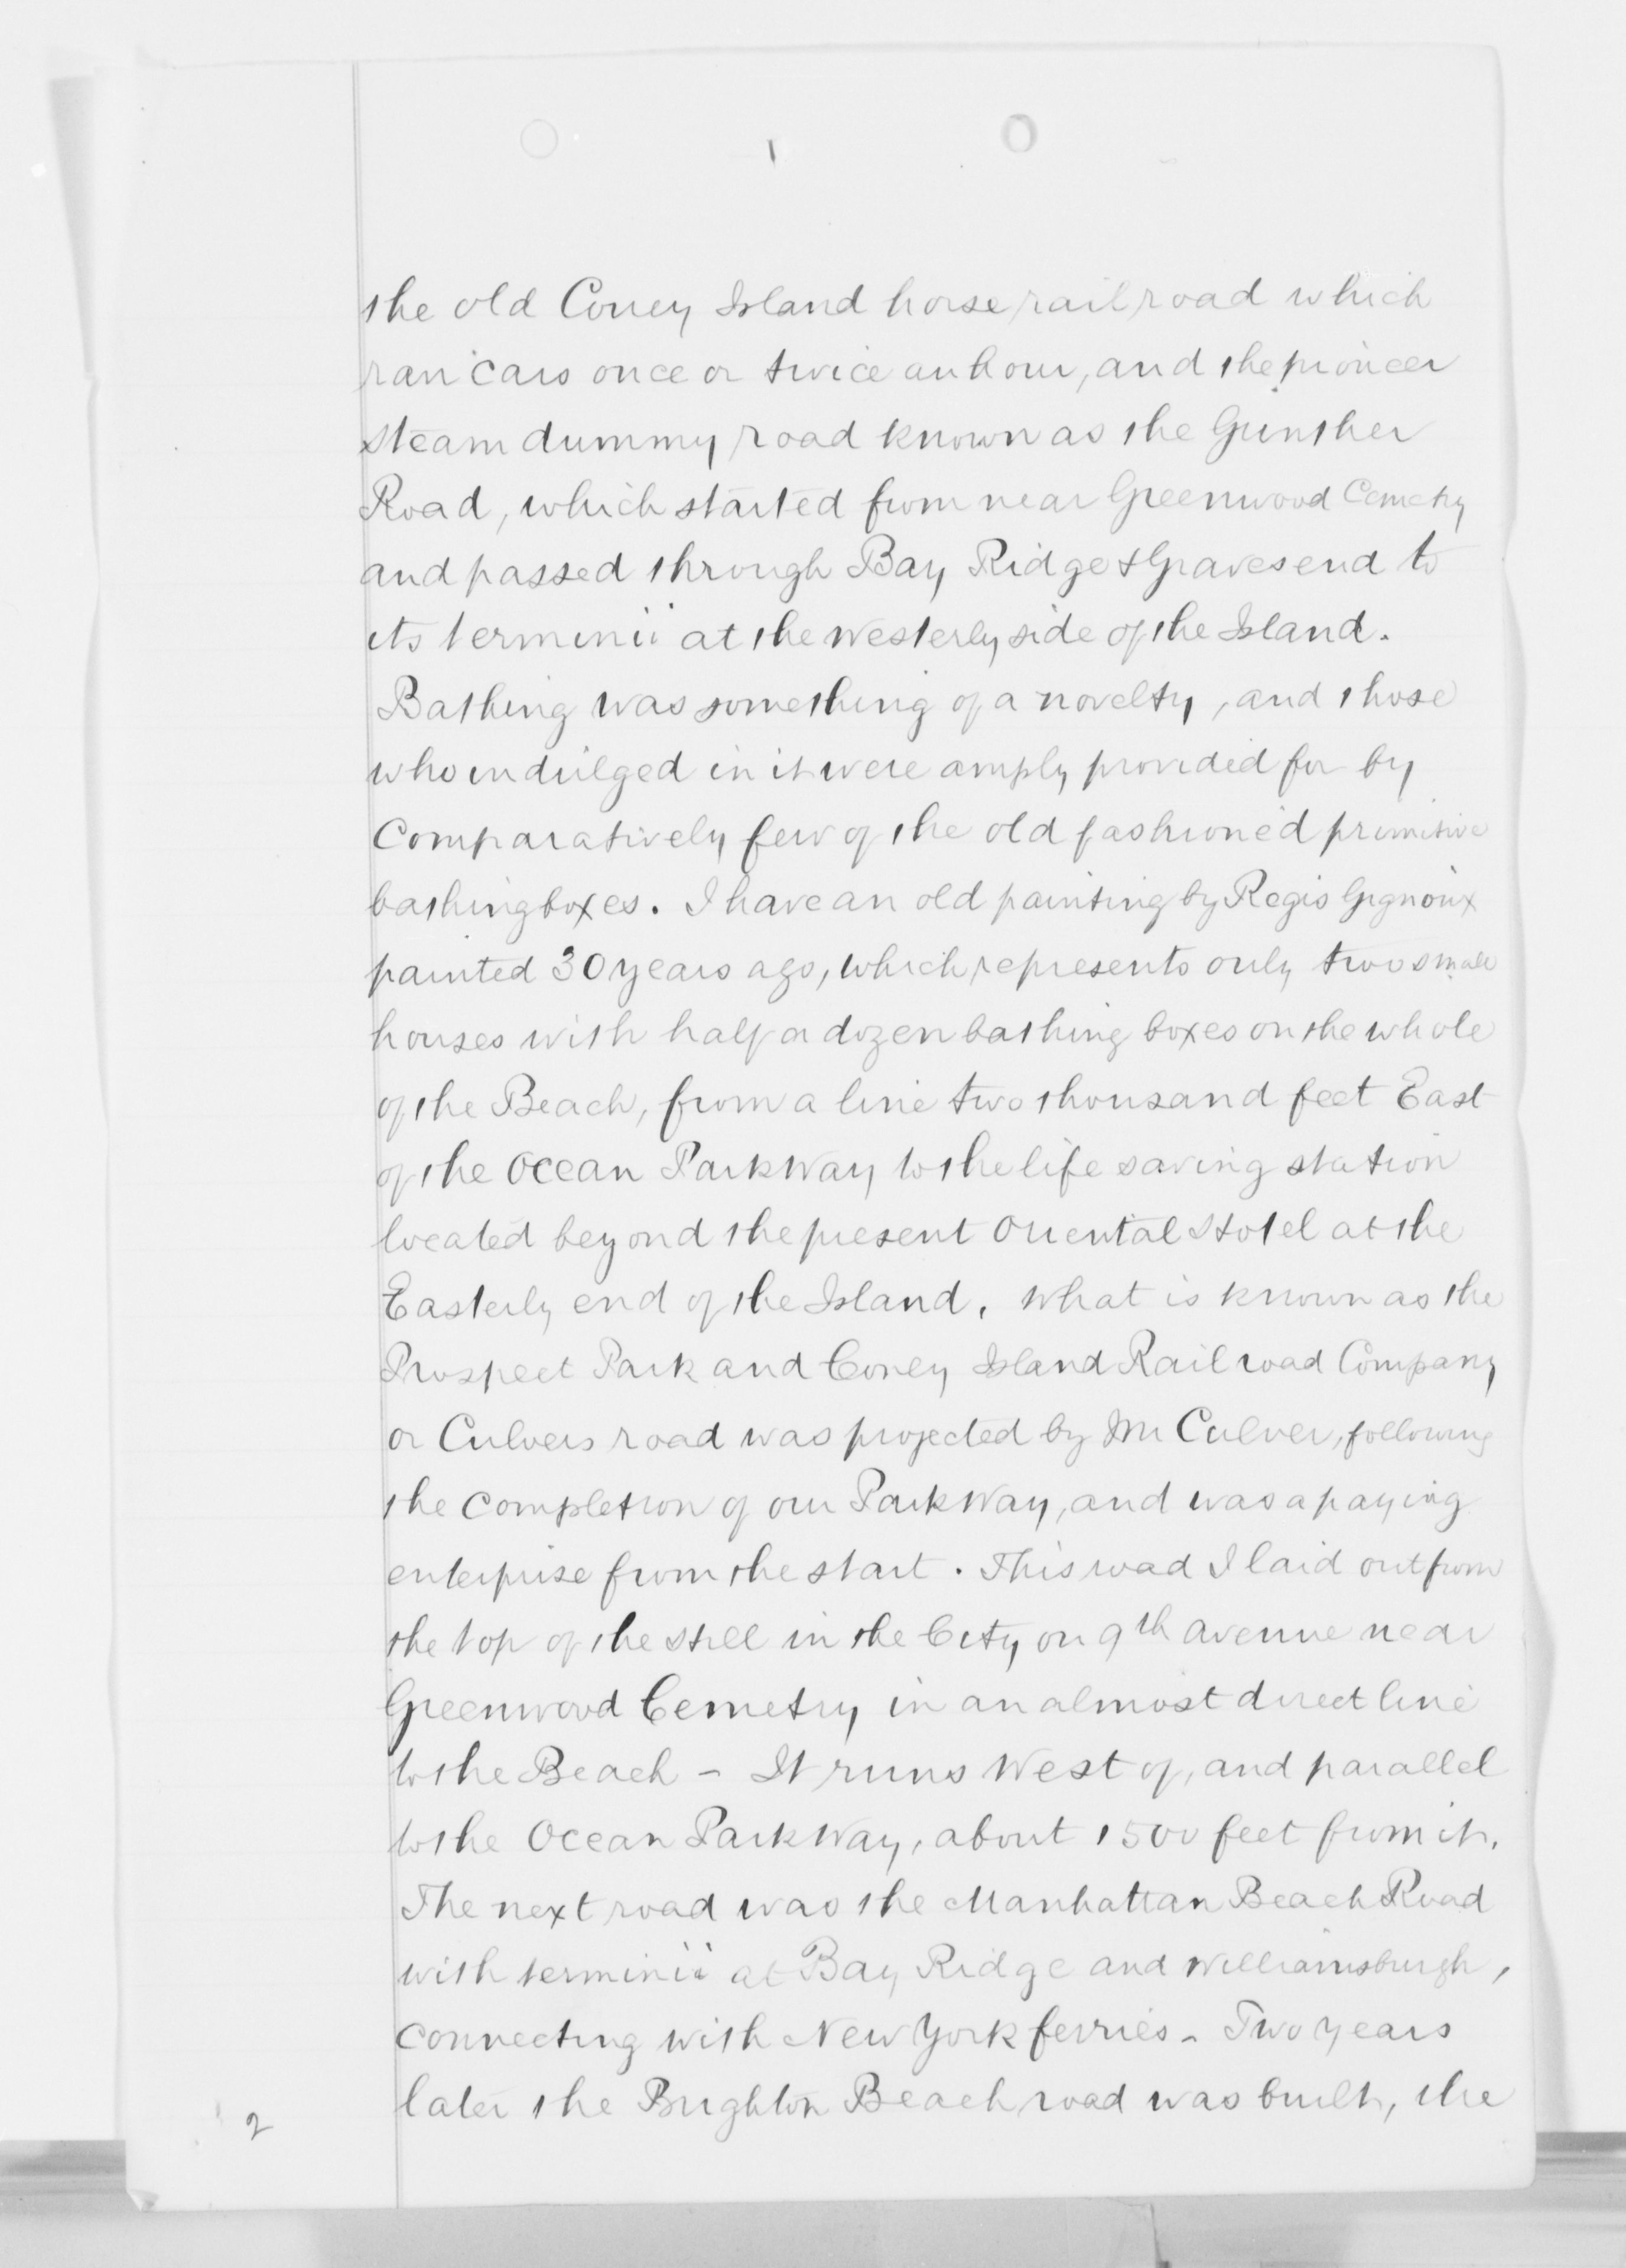 the old Coney Island horse railroad which
ran cars once or twice an hour, and the pioneer
steam dummy road known as the Gunther
Road, which started from near Greenwood Cemetry
and passed through Bay Ridge & Gravesend to
its terminii at the Westerly side of the Island.
Bathing was something of a novelty, and those
who indulged in it were amply provided for by
Comparatively few of the old fashioned primitive
bathing boxes. I have an old painting by Regis Gignoux
painted 30 years ago, which represents only two small
houses with half a dozen bathing boxes on the whole
of the Beach, from a line two thousand feet East
of the Ocean ParkWay to the life saving station
located beyond the present Oriental Hotel at the
Easterly end of the Island. What is known as the
Prospect Park and Coney Island Railroad Company
or Culvers road was projected by Mr Culver, following
the Completion of our ParkWay, and was a paying
enterprise from the start. This road I laid out from
the top of the Hill in the City on 9th Avenue near
Greenwood Cemetry in an almost direct line
to the Beach - It runs West of, and parallel
to the Ocean ParkWay, about 1500 feet from it.
The next road was the Manhattan Beach Road
with terminii at Bay Ridge and Williamsburgh,
Connecting with New York ferries - Two years
later the Brighton Beach road was built, the
2